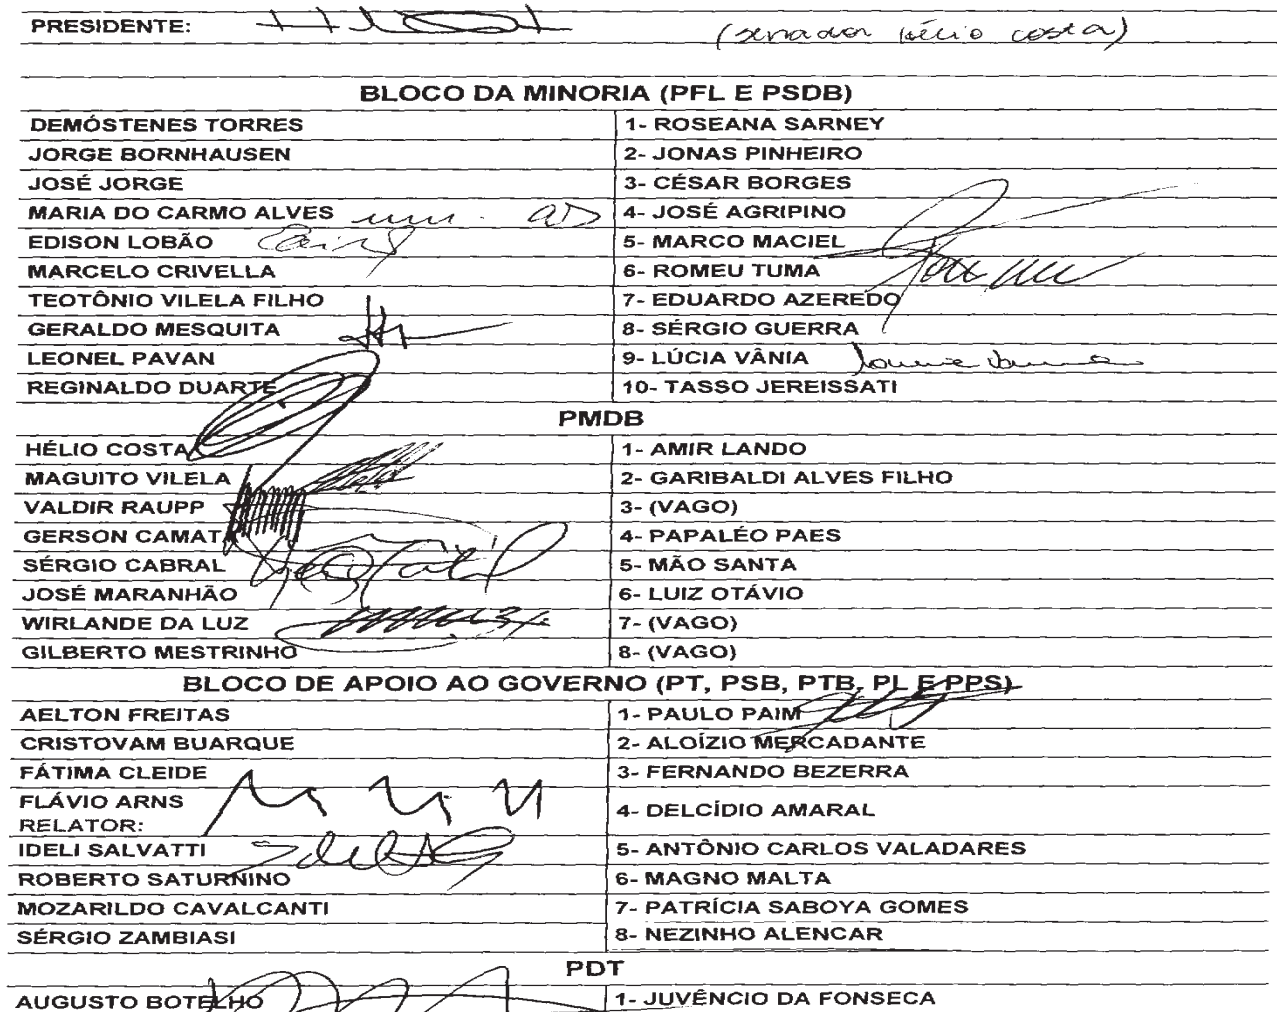 PRESIDENTE: (senador Hélio Costa)
BLOCO DA MINORIA (PFL E PSDB)
DEMÓSTENES TORRES 1- ROSEANA SARNEY
JORGE BORNHAUSEN 2- JONAS PINHEIRO
JOSÉ JORGE 3- CÉSAR BORGES
MARIA DO CARMO ALVES 4- JOSÉ AGRIPINO
EDISON LOBÃO 5- MARCO MACIEL
MARCELO CRIVELLA 6- ROMEU TUMA
TEOTÔNIO VILELA FILHO 7- EDUARDO AZEREDO
GERALDO MESQUITA 8- SÉRGIO GUERRA
LEONEL PAVAN 9- LÚCIA VÂNIA
REGINALDO DUARTE 10- TASSO JEREISSATI
PMDB
HÉLIO COSTA 1- AMIR LANDO
MAGUITO VILELA 2- GARIBALDI ALVES FILHO
VALDIR RAUPP 3- (VAGO)
GERSON CAMATA 4- PAPALÉO PAES
SÉRGIO CABRAL 5- MÃO SANTA
JOSÉ MARANHÃO 6- LUIZ OTÁVIO
WIRLANDE DA LUZ 7- (VAGO)
GILBERTO MESTRINHO 8- (VAGO)
BLOCO DE APOIO AO GOVERNO (PT, PSB, PTB, PL E PPS)
AELTON FREITAS 1- PAULO PAIM
CRISTOVAM BUARQUE 2- ALOÍZIO MERCADANTE
FÁTIMA CLEIDE 3- FERNANDO BEZERRA
FLÁVIO ARNS 4- DELCÍDIO AMARAL
RELATOR:
IDELI SALVATTI 5- ANTÔNIO CARLOS VALADARES
ROBERTO SATURNINO 6- MAGNO MALTA
MOZARILDO CAVALCANTI 7- PATRÍCIA SABOYA GOMES
SÉRGIO ZAMBIASI 8- NEZINHO ALENCAR
PDT
AUGUSTO BOTELHO 1- JUVÊNCIO DA FONSECA